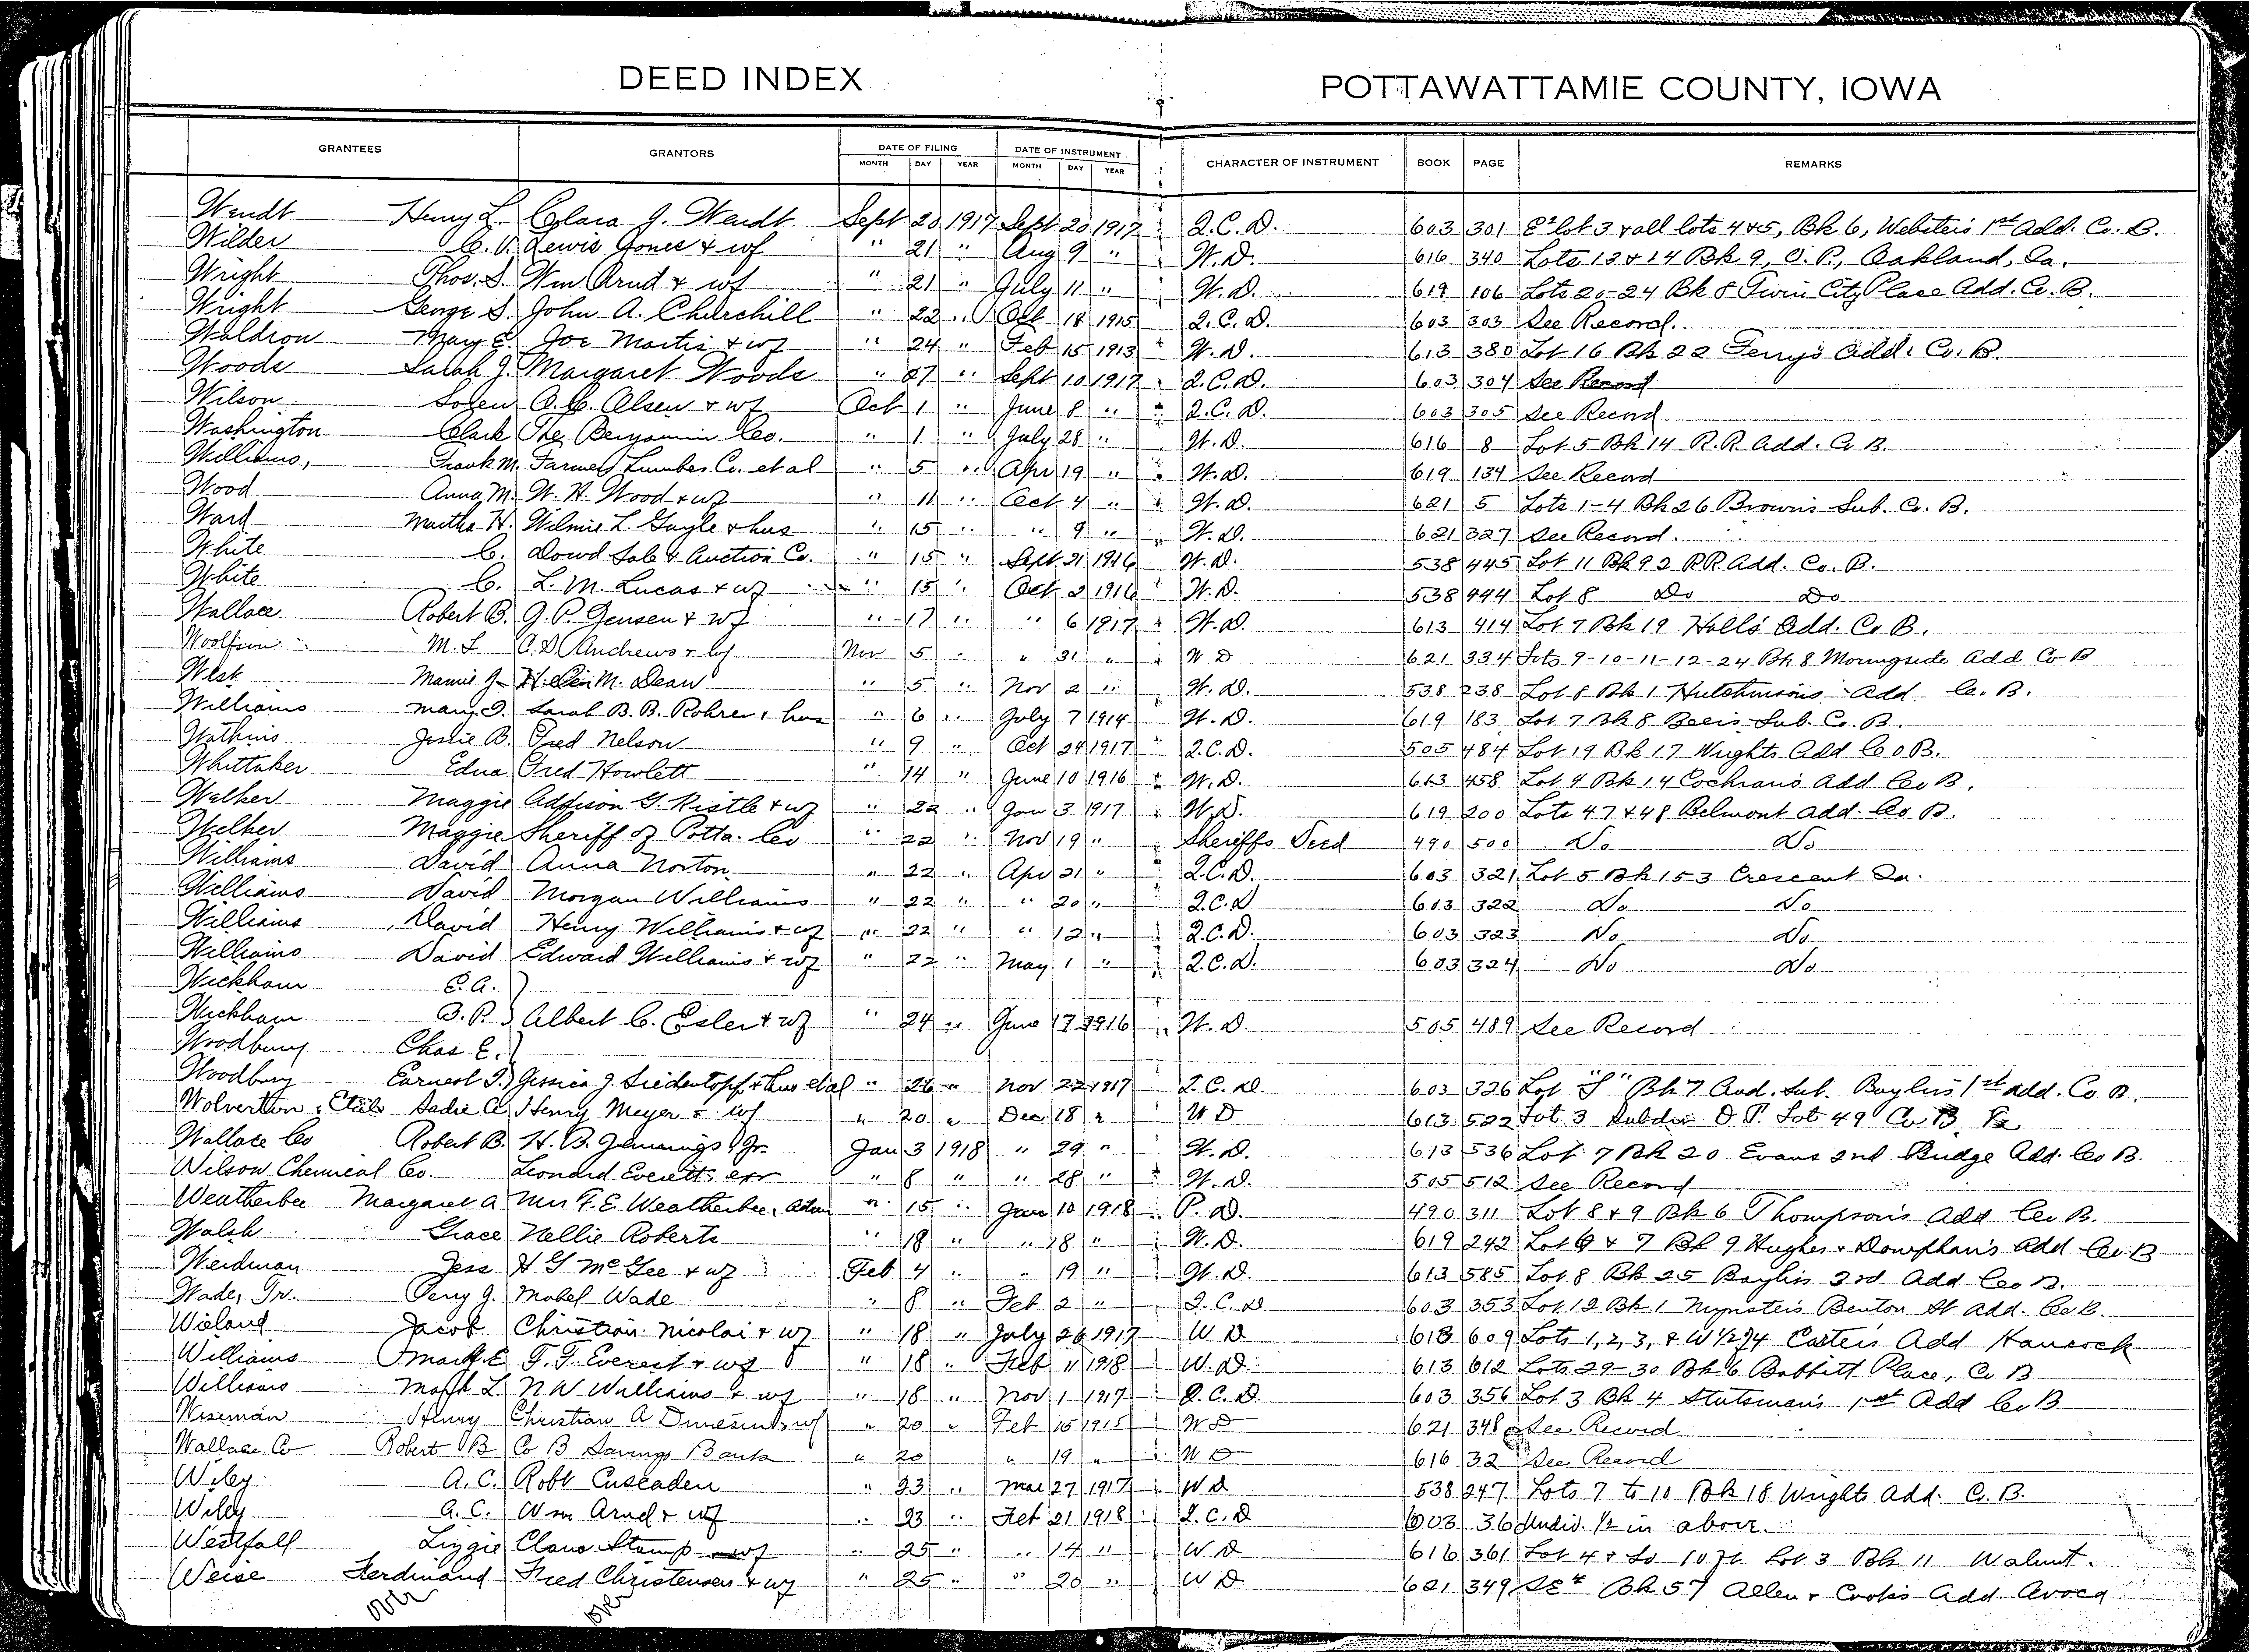 DEED INDEX
POTTAWATTAMIE COUNTY, IOWA
GRANTEES GRANTORS DATE OF FILING DATE OF INSTRUMENT CHARACTER OF INSTRUMENT BOOK PAGE REMARKS
MONTH DAY YEAR MONTH DAY YEAR
Wendt Henry L. Clara J. Wendt Sept 20 1917 Sept 20 1917 Q.C.D. 603 301 E½ lot 3 & all lots 4 & 5, Bk 6, Websters 1st Add. Co. B.
Wilder C. V. Lewis Jones & wf " 21 " Aug 9 " W.D. 616 340 Lots 13 & 14 Bk 9, O. P., Oakland, Ia.
Wright Thos. S. Wm Arnd & wf " 21 " July 11 " W.D. 619 106 Lots 20-24 Bk 8 Twin City Place Add. Co. B.
Wright George S. John A. Churchill " 22 " Oct 18 1915 Q.C.D. 603 303 See Record.
Waldron Mary E. Joe Martin & wf " 24 " Feb 15 1913 W.D. 613 380 Lot 16 Bk 22 Ferry's Add. Co. B.
Woods Sarah J. Margaret Woods " 27 " Sept 10 1917 Q.C.D. 603 304 See Record
Wilson Soren A. C. Olsen & wf Oct 1 " June 8 " Q.C.D. 603 305 See Record
Washington Clark The Benjamin Co. " 1 " July 28 " W.D. 616 8 Lot 5 Bk 14 R.R. Add. Co B.
Williams, Frank M. Farmers Lumber Co. et al " 5 " Apr 19 " W.D. 619 134 See Record
Wood Anna M. W. H. Wood & wf " 11 " Oct 4 " W.D. 621 5 Lots 1-4 Bk 26 Browns Sub. Co. B.
Ward Martha H. Wilmie L. Gayle & hus " 15 " " 9 " W.D. 621 327 See Record.
White C. Dowd Sale & Auction Co. " 15 " Sept 21 1916 W.D. 538 445 Lot 11 Bk 92 RR Add. Co. B.
White C. L. M. Lucas & wf " 15 " Oct 2 1916 W.D. 538 444 Lot 8 Do Do
Wallace Robert B. J. P. Jensen & wf " 17 " " 6 1917 W.D. 613 414 Lot 7 Bk 19 Halls Add. Co B.
Woolfson M. L C. D. Andrews & wf Nov 5 " " 31 " W D 621 334 Lots 9-10-11-12-24 Bk 8 Morningside Add Co B
West Mamie J. Helen M. Dean " 5 " Nov 2 " W.D. 538 238 Lot 8 Bk 1 Hutchinsons Add. Co. B.
Williams Mary I. Sarah B. B. Rohrer & hus " 6 " July 7 1914 W.D. 619 183 Lot 7 Bk 8 Beers Sub. Co. B.
Watkins Jessie B. Fred Nelson " 9 " Oct 24 1917 Q.C.D. 505 484 Lot 19 Bk 17 Wrights Add Co B.
Whittaker Edna Fred Howlett " 14 " June 10 1916 W.D. 613 458 Lot 4 Bk 14 Cochrans Add Co B.
Welker Maggie Addison G. Kistle & wf " 22 " Jan 3 1917 W.D. 619 200 Lots 47 & 48 Belmont Add. Co B.
Welker Maggie Sheriff of Potta. Co " 22 " Nov 19 " Sheriffs Deed 490 500 Do Do
Williams David Anna Norton " 22 " Apr 21 " Q.C.D. 603 321 Lot 5 Bk 153 Crescent Ia.
Williams David Morgan Williams " 22 " " 20 " Q.C.D 603 322 Do Do
Williams David Henry Williams & wf " 22 " " 12 " Q.C.D. 603 323 Do Do
Williams David Edward Williams & wf " 22 " May 1 " Q.C.D. 603 324 Do Do
Wickham E. A.
Wickham O. P. Albert C. Esler & wf " 24 " June 17 1916 W.D. 505 489 See Record
Woodbury Chas E.
Woodbury Earnest I. Jessica J. Siedentopf & hus et al " 26 " Nov 22 1917 Q.C.D. 603 326 Lot "S" Bk 7 Aud. Sub. Bayliss 1st Add. Co B.
Wolverton Sadie A Henry Meyer & wf " 20 " Dec 18 " W D 613 522 Lot 3 Subdiv O P. Lot 49 Co B.
Wallace Co Robert B. H. B. Jennings, Jr. Jan 3 1918 " 29 " W.D. 613 536 Lot 7 Bk 20 Evans 2nd Bridge Add. Co B.
Wilson Chemical Co. Leonard Everett exr " 8 " " 28 " W.D. 505 512 See Record
Weatherbee Margaret A Mrs F. E. Weatherbee, Adm " 15 " Jan 10 1918 P.D. 490 311 Lot 8 & 9 Bk 6 Thompsons Add Co B.
Walsh Grace Nellie Roberts " 18 " " 18 " W.D. 619 242 Lot 6 & 7 Bk 9 Hughes & Doniphan's Add Co B
Weidman Jess H G McGee & wf Feb 4 " " 19 " W.D. 613 585 Lot 8 Bk 25 Bayliss 2nd Add Co B.
Wade, Jr. Perry J. Mabel Wade " 8 " Feb 2 " Q.C.D 603 353 Lot 12 Bk 1 Mynsters Benton St Add. Co B.
Wieland Jacob Christian Nicolai & wf " 18 " July 26 1917 W D 613 609 Lots 1, 2, 3, & W ½ of 4 Carters Add Hancock
Williams Mark E F. F. Everest & wf " 18 " Feb 11 1918 W.D. 613 612 Lots 29-30 Bk 6 Babbitt Place, Co B
Williams Mark L. N W Williams & wf " 18 " Nov 1 1917 Q.C.D. 603 356 Lot 3 Bk 4 Stutsman's 1st Add Co B
Wiseman Henry Christian A " 20 " Feb 15 1915 W D 621 348 See Record
Wallace Co Robert B Co B Savings Bank " 20 " 19 " W D 616 32 See Record
Wiley A. C. Robt Cuscaden " 23 " Mar 27 1917 W D 538 247 Lots 7 to 10 Bk 18 Wrights Add. C. B.
Wiley A. C. Wm Arnd & wf " 23 " Feb 21 1918 Q.C.D 603 36 Undiv. ½ in above.
Westfall Lizzie Claus Stamp & wf " 25 " " 14 " W D 616 361 Lot 4 & So 10 ft Lot 3 Bk 11 Walnut.
Weise Ferdinand Fred Christensen & wf " 25 " " 20 " W D 621 349 SE¼ Bk 57 Allen & Cook's Add. Avoca
over over